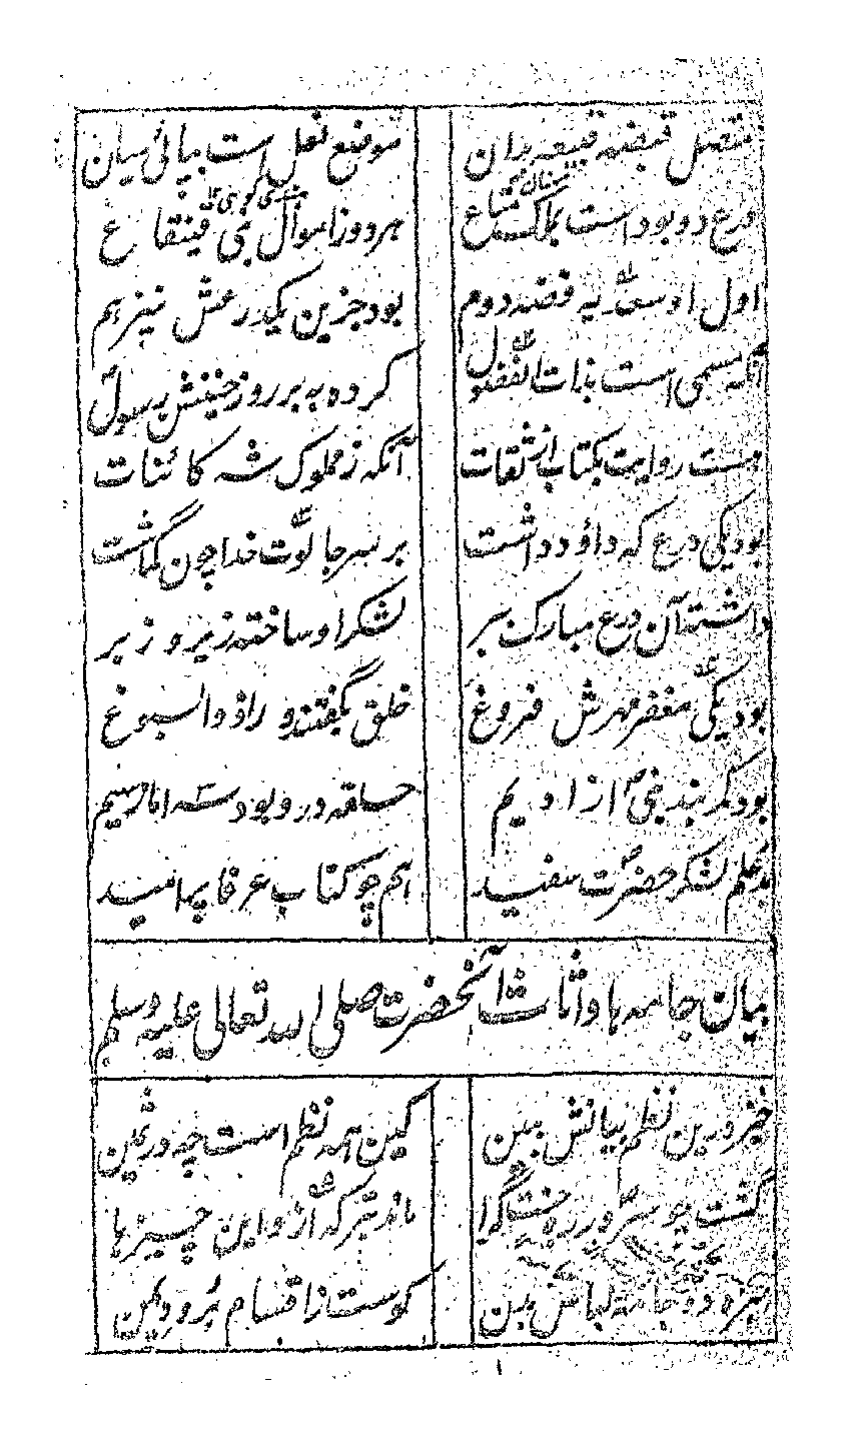 متصل قبضه قبیعه بدان
موضع نعل است بپائی میان
درع دو بود است بملک متاع
هر دو ز اموال بنی قینقاع
اول او سعدیه فضه دوم
بود جزین یکدرعش نیز هم
آنکه مسمی است بذات الفضول
کرده به بر روز حنینش رسول
هست روایت بکتاب از ثقات
آنکه ز مملوک شه کائنات
بود یکی درع که داؤد داشت
بر سر جالوت خدا چون گماشت
داشته آن درع مبارک ببر
لشکر او ساخته زیر و زبر
بود یکی مغفر مهرش فروغ
خلق بگفتند و را ذو السبوغ
بود کمربند نبی از ادیم
حلقه درو بود سه اما ز سیم
بد علم لشکر حضرت سفید
همچو کتاب عرفا پر امید
بیان جامه ها و اثاث آنحضرت صلی الله تعالی علیه وسلم
خیز و درین نظم بیانش ببین
کین همه نظم است چه در ثمین
گشت چو سرور ره جنت گرا
ماند بترکه از و این چیزها
حبره دو و جامه لباسش ببین
کوست ز اقسام برود یمن